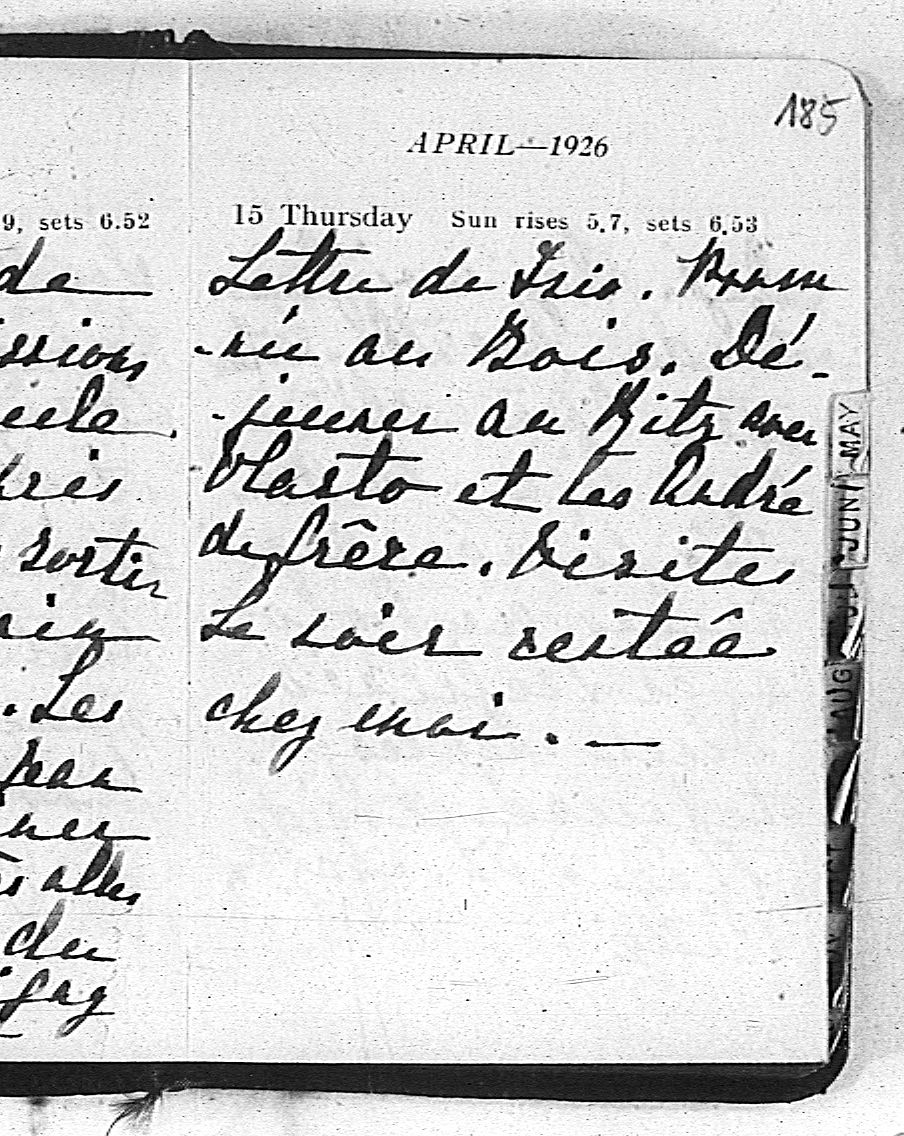 185
APRIL—1926
9, sets 6.52
de
ssions
cule.
sorti
. Les
Jean
ner
s alles
du
15 Thursday Sun rises 5.7, sets 6.53
Lettre de Isis. Prome
-née au Bois. Dé-
-jeuner au Ritz avec
Vlasto et les André
de frère. Visites
Le soir restée
chez moi. —
MAY
JUN
AUG